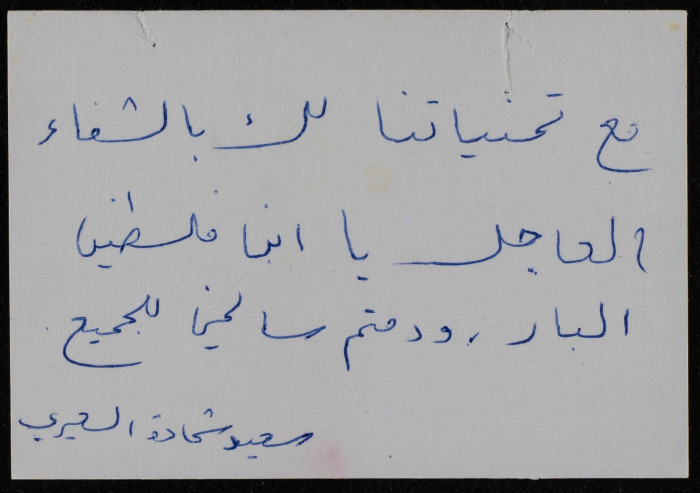 مع تمنياتنا لك بالشفاء
العاجل يا ابن فلسطين
البار، ودمتم سالمين للجميع.
سعيد شحادة السعيري